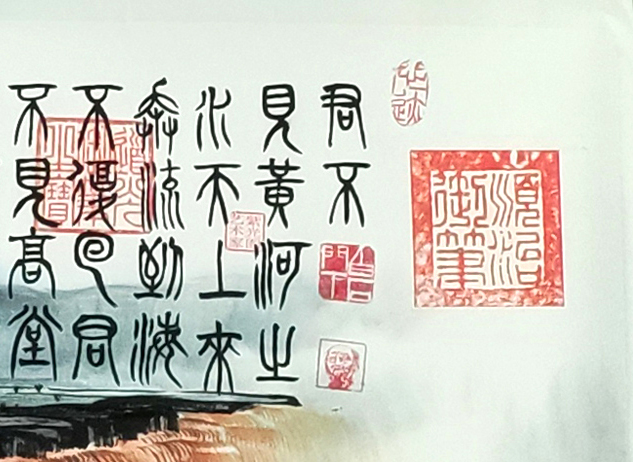 順治
御筆
君不
見黃河之
水天上來
奔流到海
不復回君
不見高堂